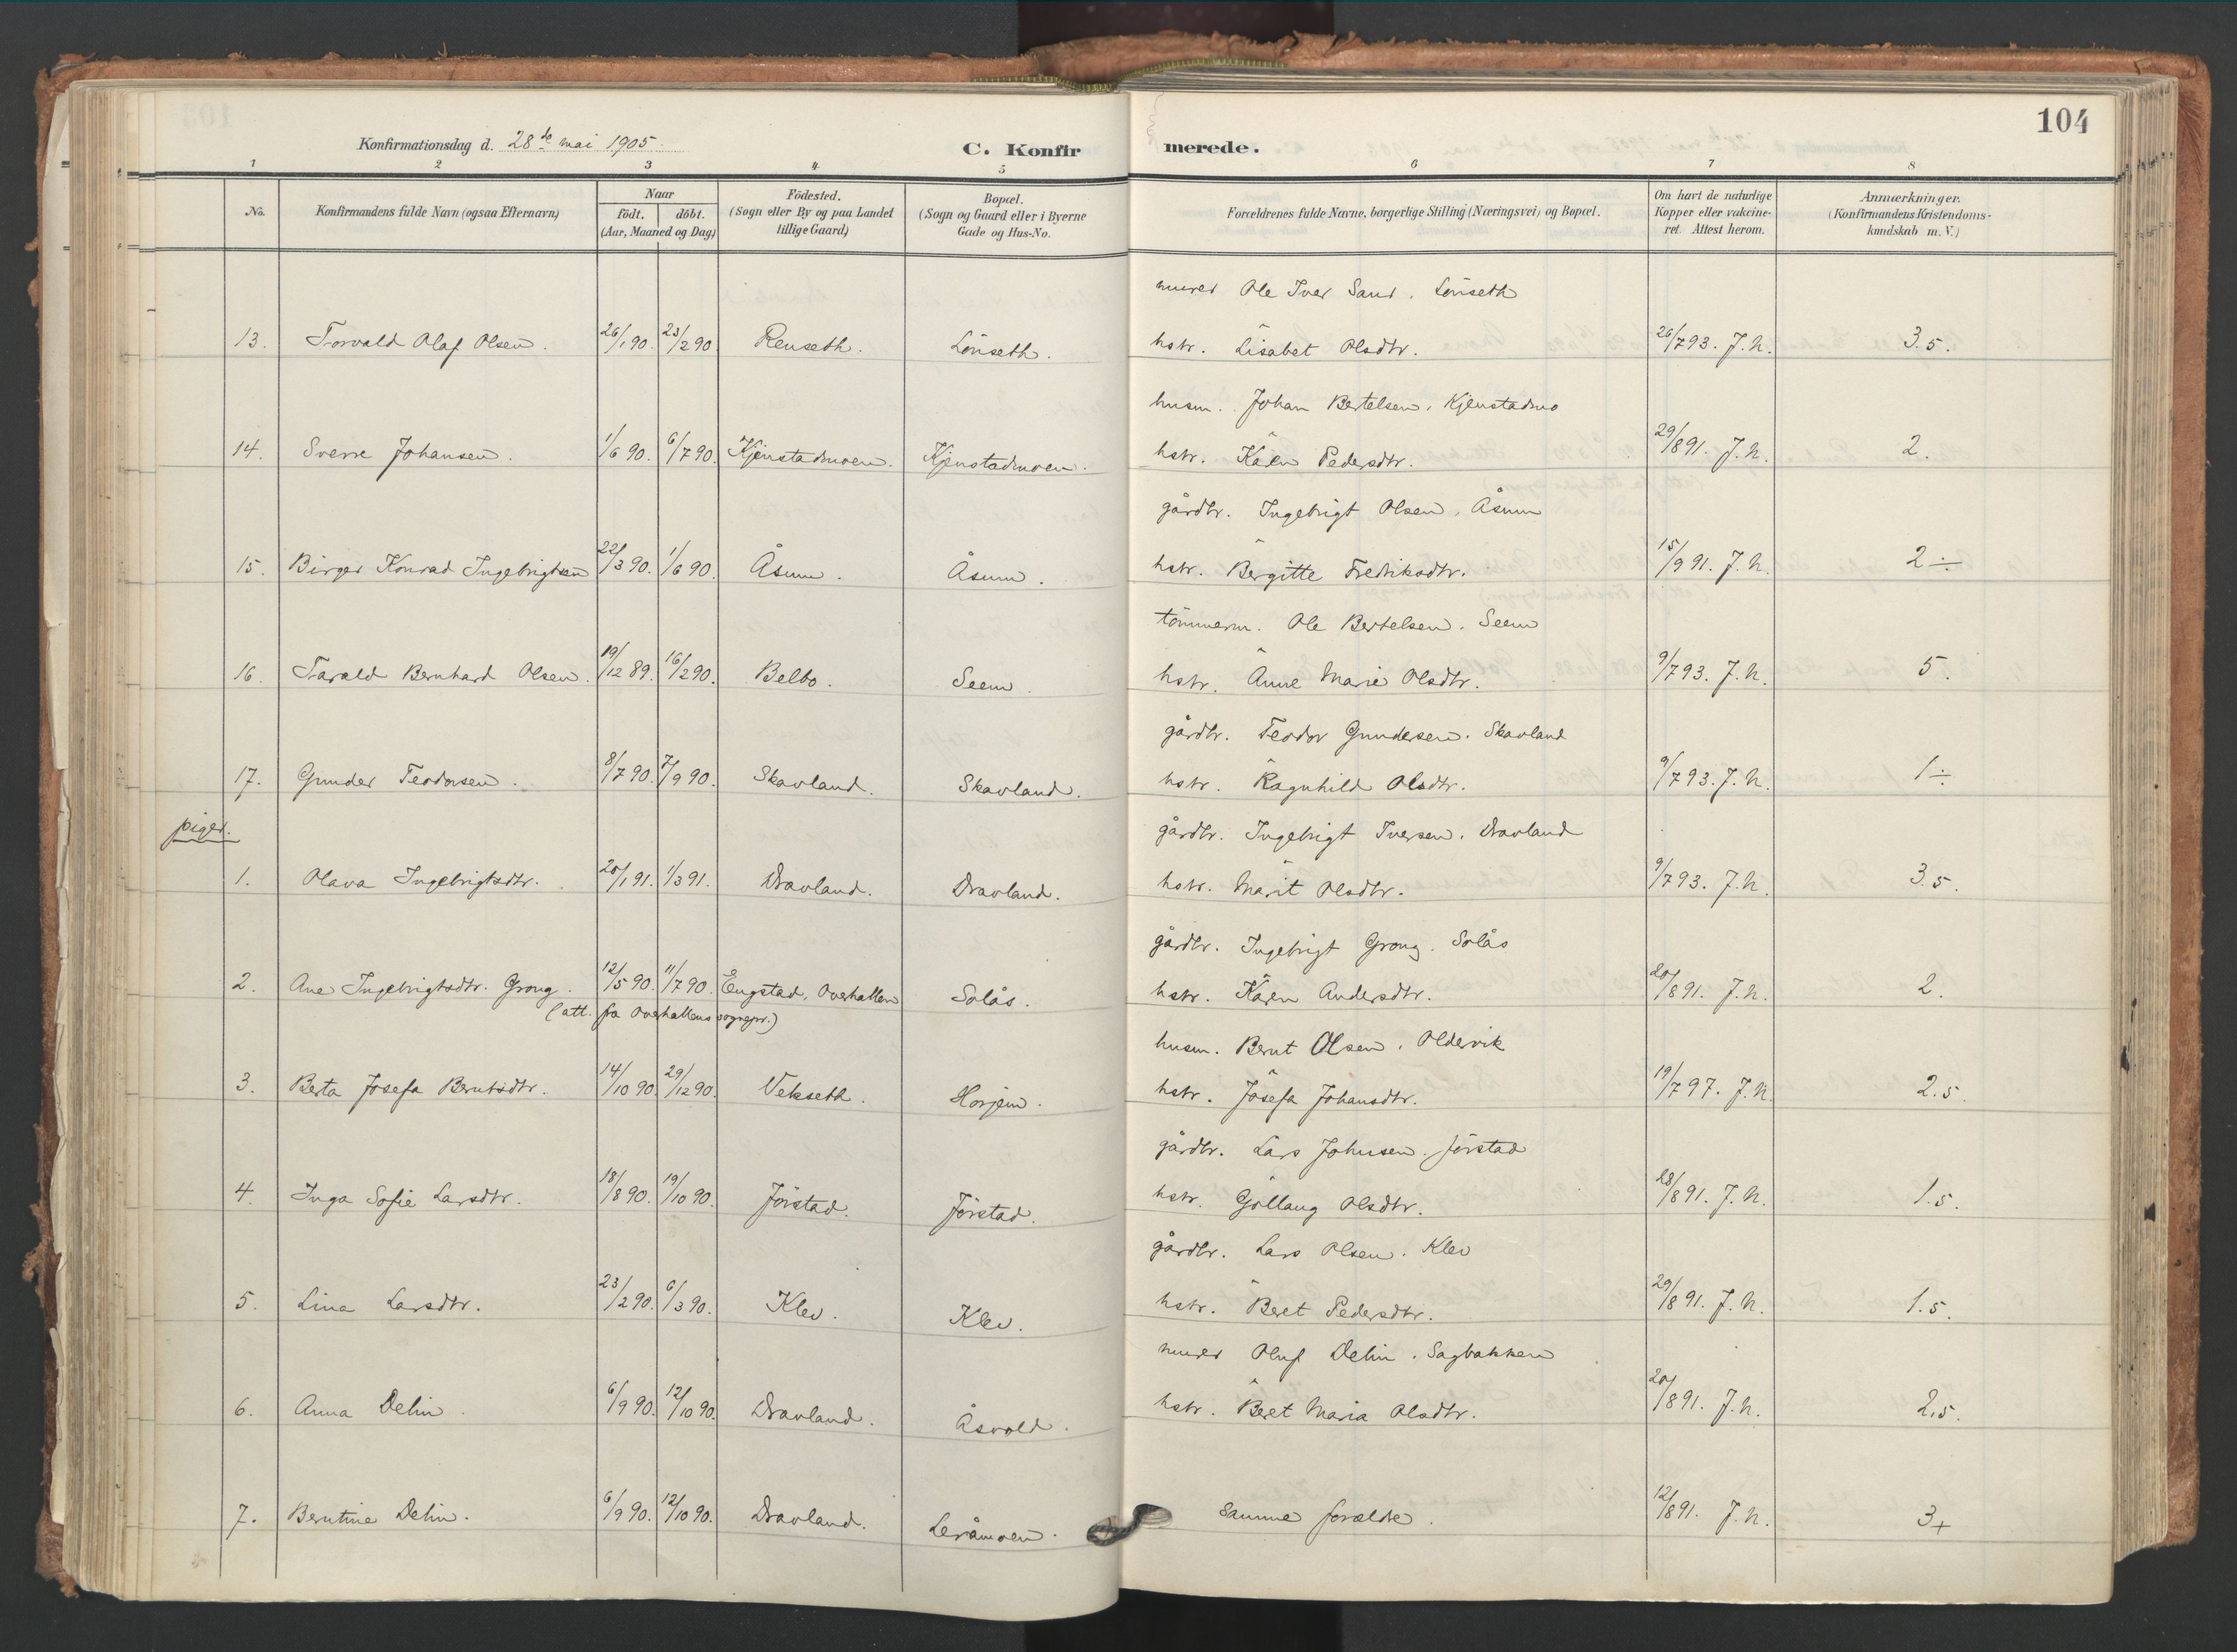 104
Konfirmationsdag d. 28de mai 1905.
C. Konfirmerede.
1 2 3 4 5 6 7 8
No. | Konfirmandens fulde Navn (ogsaa Efternavn) | Naar födt. döbt. (Aar, Maaned og Dag) | Födested. (Sogn eller By og paa Landet tillige Gaard) | Bopæl. (Sogn og Gaard eller i Byerne Gade og Hus-No. | Forældrenes fulde Navne, borgerlige Stilling (Næringsvei) og Bopæl. | Om havt de naturlige Kopper eller vakcineret. Attest herom. | Anmærkninger. (Konfirmandens Kristendomskundskab m. V.)
murer Ole Iver Sand. Lönseth
13. Torvald Olaf Olsen. 26/1 90. 23/2 90. Renseth. Lönseth. hstr. Lisabet Olsdtr. 26/7 93. J.N. 3.5.
husm. Johan Bertelsen, Kjenstadmo
14. Sverre Johansen. 1/6 90. 6/7 90. Kjenstadmoen. Kjenstadmoen. hstr. Karen Pedersdtr. 29/8 91. J.N. 2.
gårdbr. Ingebrigt Olsen, Åsum
15. Birger Konrad Ingebrigtsen 22/3 90. 1/6 90. Åsum. Åsum. hstr. Bergitte Fredriksdtr. 15/9 91. J.N. 2 ÷
tömmerm. Ole Bertelsen. Seem
16. Harald Bernhard Olsen. 19/12 89. 16/2 90. Belbo. Seem. hstr. Anne Marie Olsdtr. 9/7 93. J.N. 5.
gårdbr. Teodor Gundersen. Skavland
17. Gunder Teodorsen. 8/7 90. 7/9 90. Skavland. Skavland. hstr. Ragnhild Olsdtr. 9/7 93. J.N. 1 ÷
piger.
gårdbr. Ingebrigt Iversen. Davland
1. Olava Ingebrigtsdtr. 20/1 91. 1/3 91. Davland. Davland. hstr. Marit Olsdtr. 9/7 93. J.N. 3.5.
gårdbr. Ingebrigt Grong. Solås
2. Ane Ingebrigtsdtr. Grong. 12/5 90. 11/7 90. Engstad, Overhallen Solås. hstr. Karen Andersdtr. 20/8 91. J.N. 2.
(att. fra Overhallens sognepr.)
husm. Bernt Olsen, Oldervik
3. Berta Josefa Berntsdtr. 14/10 90. 29/12 90. Vekseth. Horjem. hstr. Josefa Johansdtr. 19/7 97. J.N. 2.5.
gårdbr. Lars Johnsen. Jörstad
4. Inga Sofie Larsdtr. 18/8 90. 19/10 90. Jörstad. Jörstad. hstr. Göllaug Olsdtr. 28/8 91. J.N. 1.5.
gårdbr. Lars Olsen. Klev
5. Lina Larsdtr. 23/2 90. 6/3 90. Klev. Klev. hstr. Beret Pedersdtr. 29/8 91. J.N. 1.5.
murer Oluf Delin. Sagbakken
6. Anna Delin. 6/9 90. 12/10 90. Davland. Åsvold. hstr. Beret Maria Olsdtr. 20/8 91. J.N. 2,5.
7. Berntine Delin. 6/9 90. 12/10 90. Davland. Leråmoen. samme forældre. 12/8 91. J.N. 3+